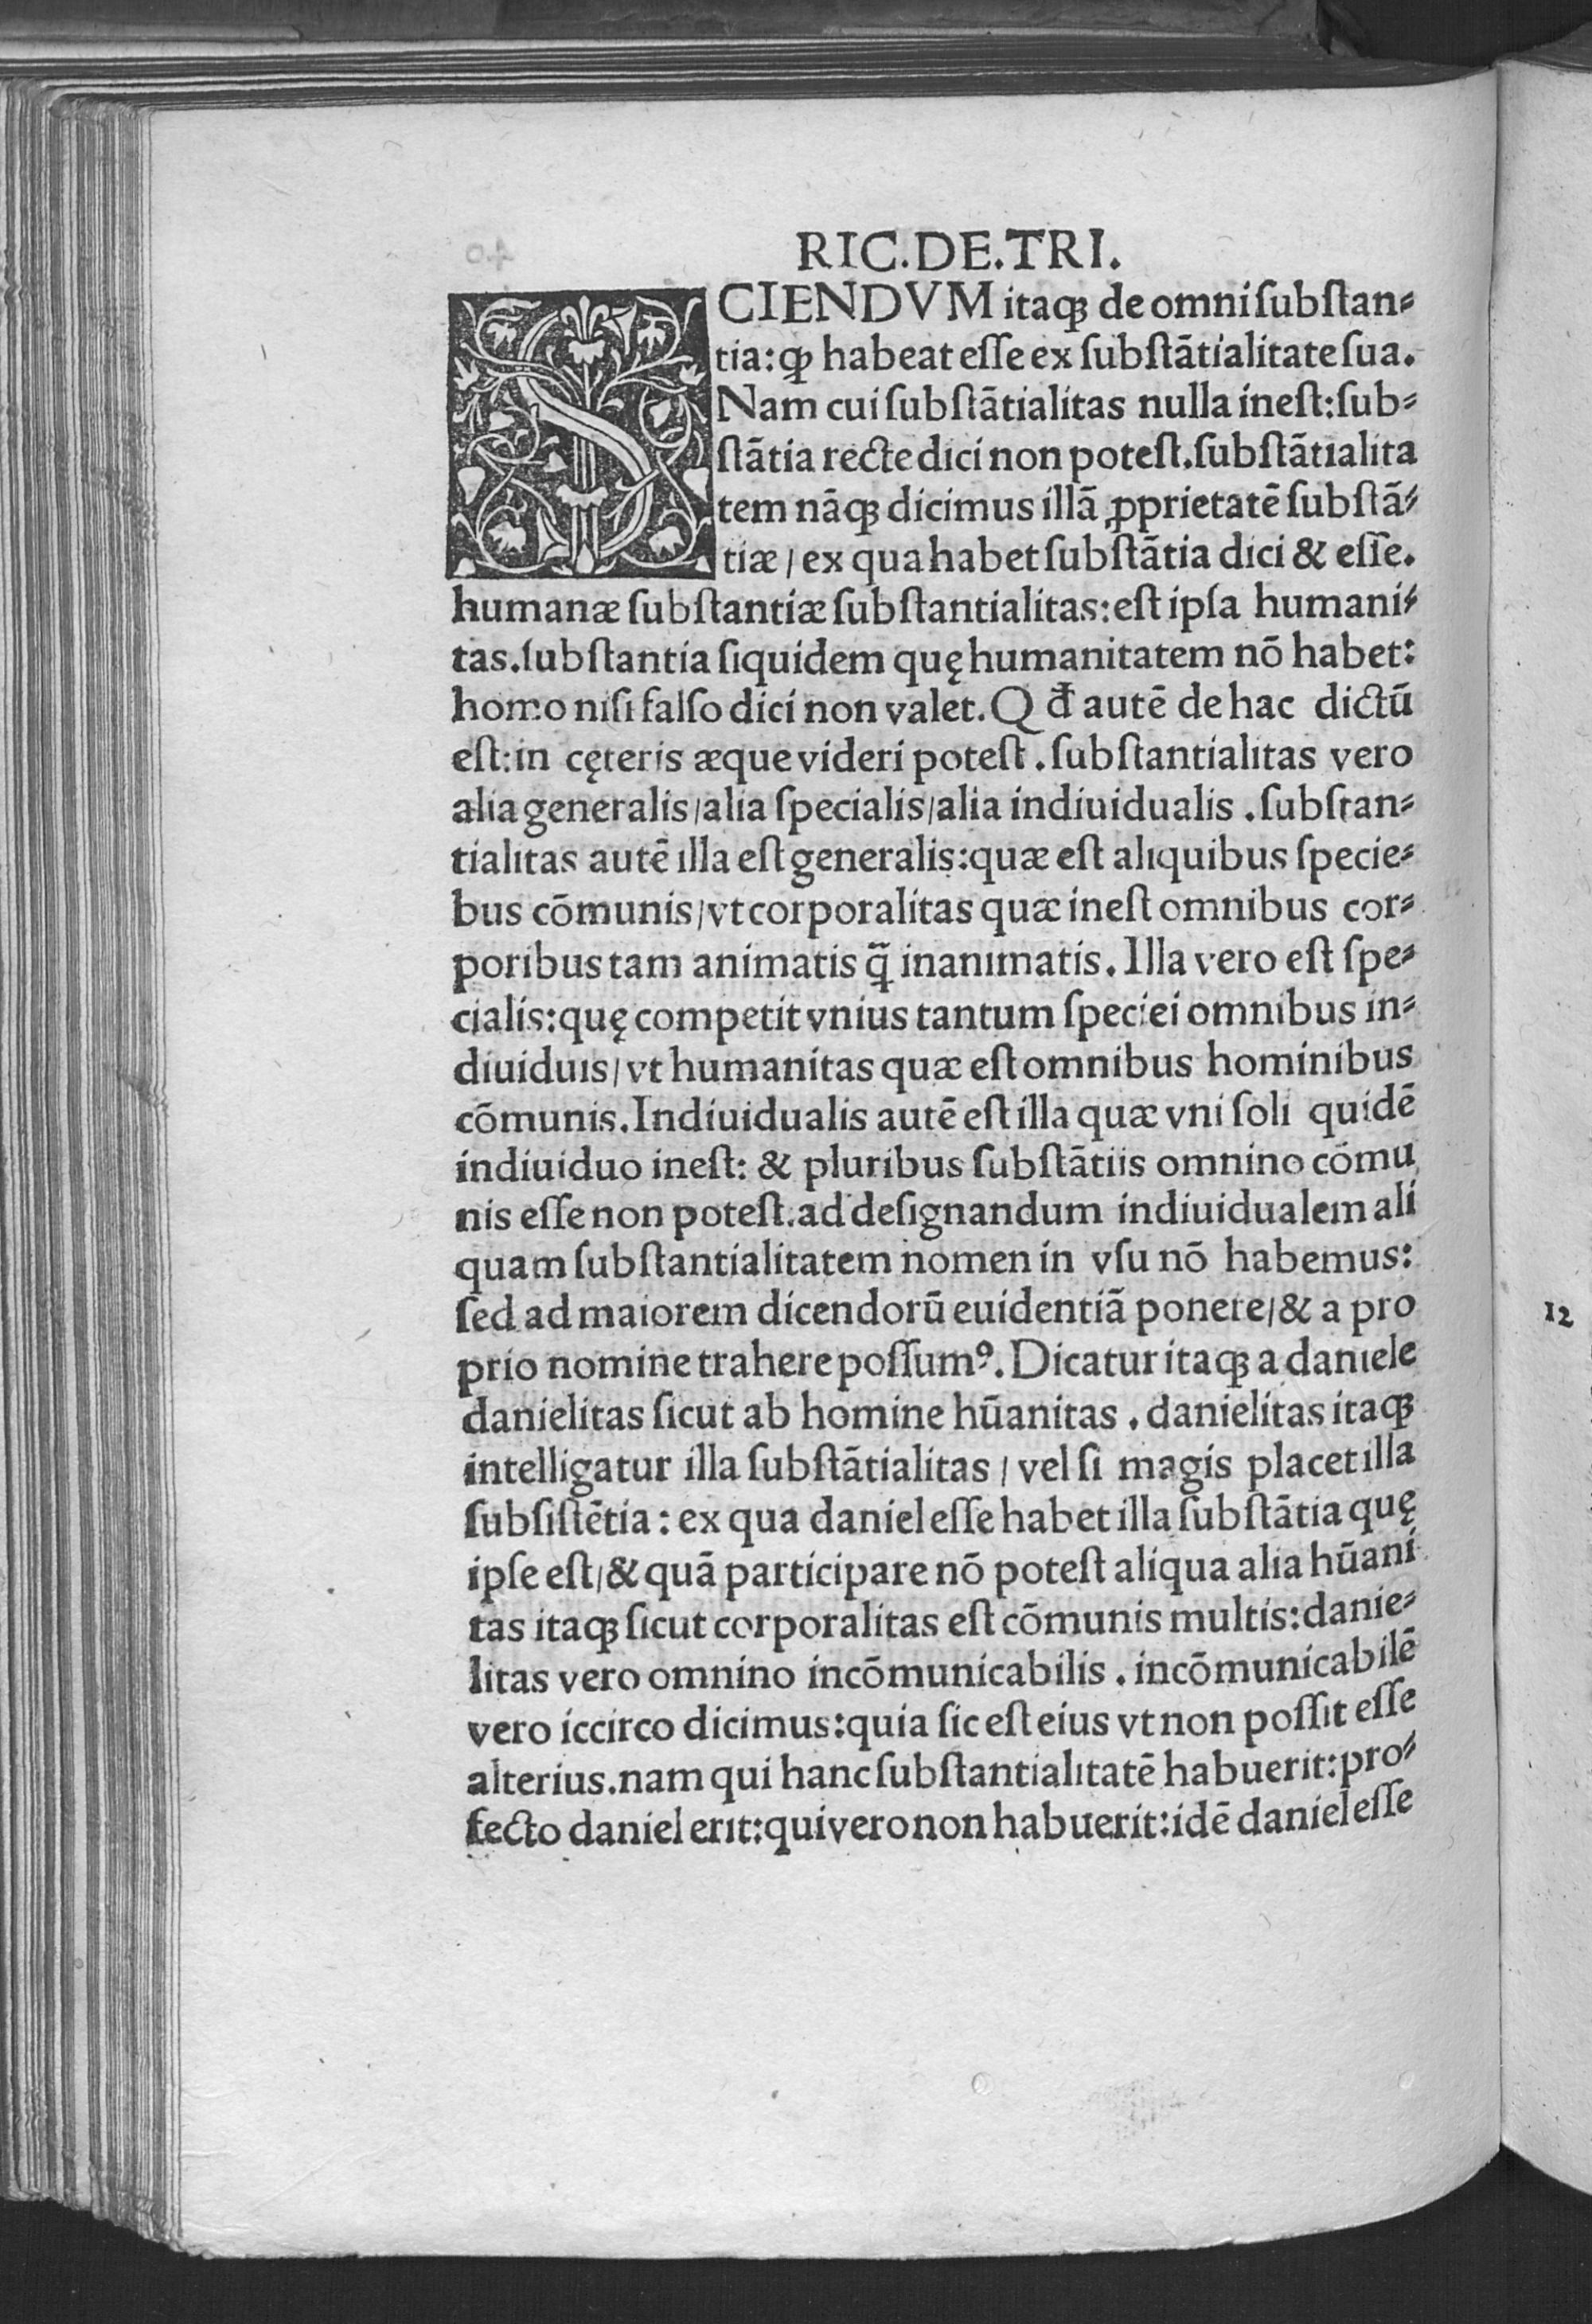 RIC.DE.TRI.
SCIENDVM itaqꝫ de omni ſubſtan⸗
tia: ꝙ habeat eſſe ex ſubſtātialitate ſua.
Nam cui ſubſtātialitas nulla ineſt: ſub⸗
ſtātia recte dici non poteſt. ſubſtātialita
tem nāqꝫ dicimus illā ꝓprietatē ſubſtā⸗
tiæ / ex qua habet ſubſtātia dici & eſſe.
humanæ ſubſtantiæ ſubſtantialitas: eſt ipſa humani⸗
tas. ſubſtantia ſiquidem quę humanitatem nō habet:
homo niſi falſo dici non valet. Qđ autē de hac dictū
eſt: in cęteris æque videri poteſt. ſubſtantialitas vero
alia generalis / alia ſpecialis / alia indiuidualis. ſubſtan⸗
tialitas autē illa eſt generalis: quæ eſt aliquibus ſpecie⸗
bus cōmunis / vt corporalitas quæ ineſt omnibus cor⸗
poribus tam animatis q̄ inanimatis. Illa vero eſt ſpe⸗
cialis: quę competit vnius tantum ſpeciei omnibus in⸗
diuiduis / vt humanitas quæ eſt omnibus hominibus
cōmunis. Indiuidualis autē eſt illa quæ vni ſoli quidē
indiuiduo ineſt: & pluribus ſubſtātiis omnino cōmu
nis eſſe non poteſt. ad deſignandum indiuidualem ali
quam ſubſtantialitatem nomen in vſu nō habemus:
ſed ad maiorem dicendorū euidentiā ponere / & a pro
prio nomine trahere poſſumꝰ. Dicatur itaqꝫ a daniele
danielitas ſicut ab homine hūanitas. danielitas itaqꝫ
intelligatur illa ſubſtātialitas / vel ſi magis placet illa
ſubſiſtētia: ex qua daniel eſſe habet illa ſubſtātia quę
ipſe eſt / & quā participare nō poteſt aliqua alia hūani
tas itaqꝫ ſicut corporalitas eſt cōmunis multis: danie⸗
litas vero omnino incōmunicabilis. incōmunicabilē
vero iccirco dicimus: quia ſic eſt eius vt non poſſit eſſe
alterius. nam qui hanc ſubſtantialitatē habuerit: pro⸗
fecto daniel erit: qui vero non habuerit: idē daniel eſſe
12